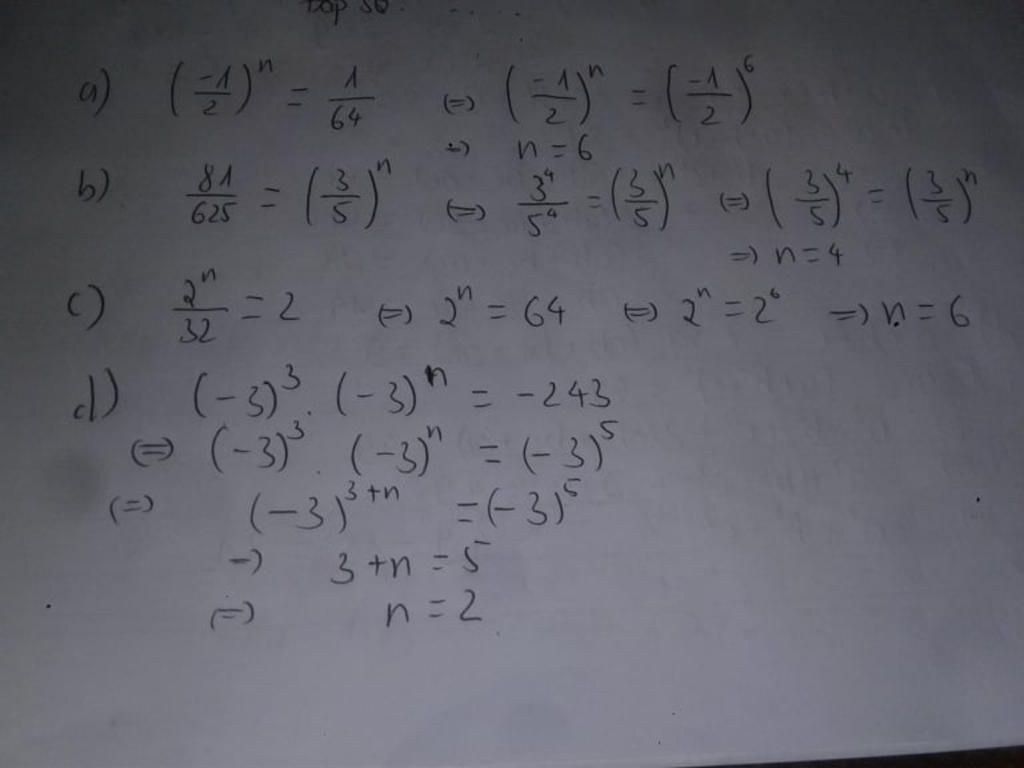 a) (-1/2)^n = 1/64 (=) (-1/2)^n = (-1/2)^6
=) n = 6
b) 81/625 = (3/5)^n (=) 3^4/5^4 = (3/5)^n (=) (3/5)^4 = (3/5)^n
=) n = 4
c) 2^n/32 = 2 (=) 2^n = 64 (=) 2^n = 2^6 =) n = 6
d) (-3)^3 . (-3)^n = -243
(=) (-3)^3 . (-3)^n = (-3)^5
(=) (-3)^{3+n} = (-3)^5
=) 3+n = 5
(=) n = 2